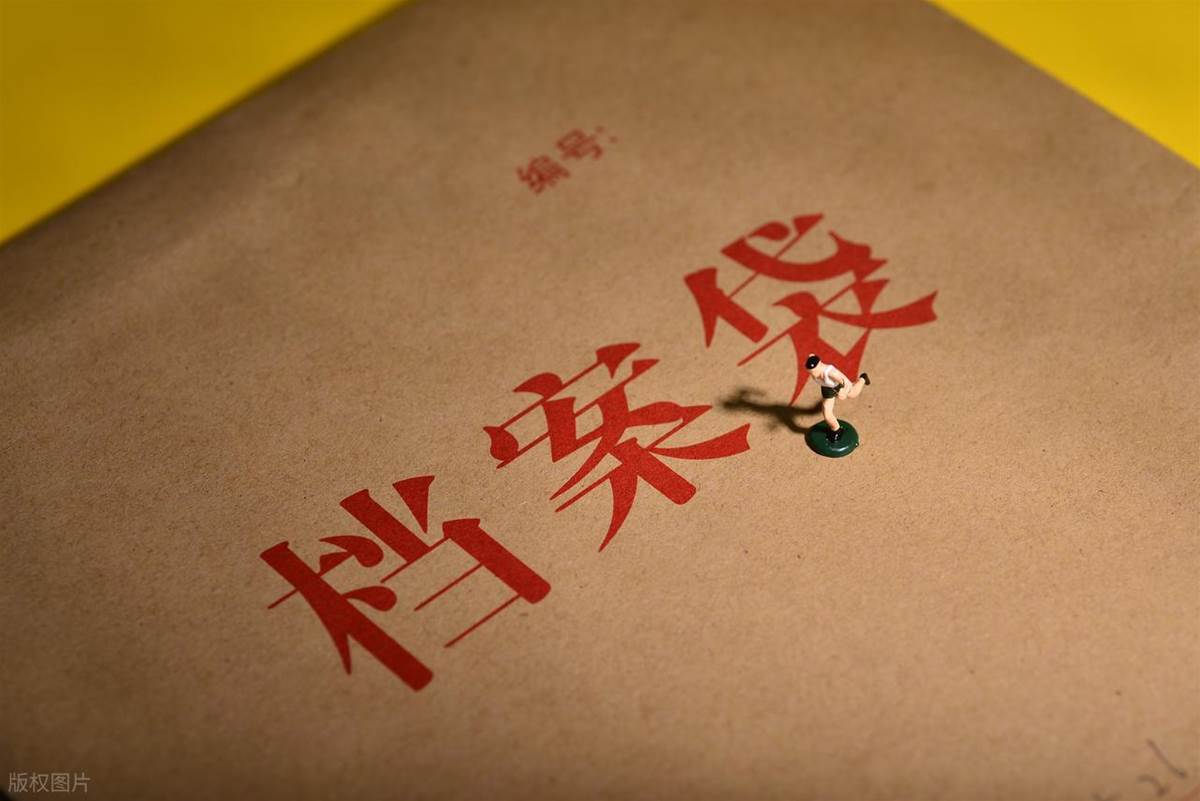 编号:
档案袋
版权图片